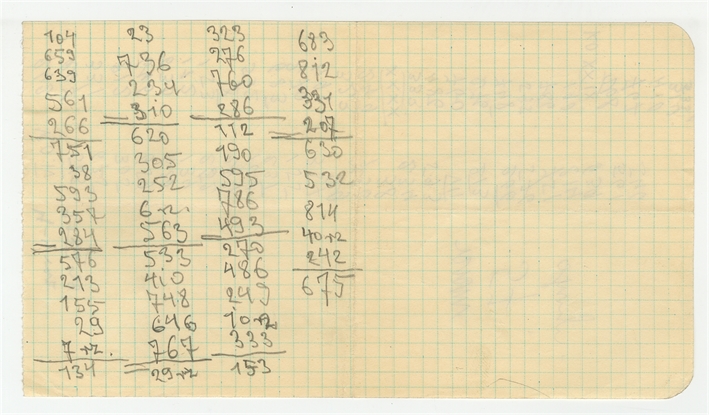 104
659
639
561
266
751
38
593
357
284
576
213
155
29
7+2.
134
23
736
234
310
620
305
252
6+2.
563
533
410
748
646
767
29+2
323
276
760
286
112
190
595
786
493
270
486
249
10+2
333
153
683
812
331
207
630
532
814
40+2
242
675